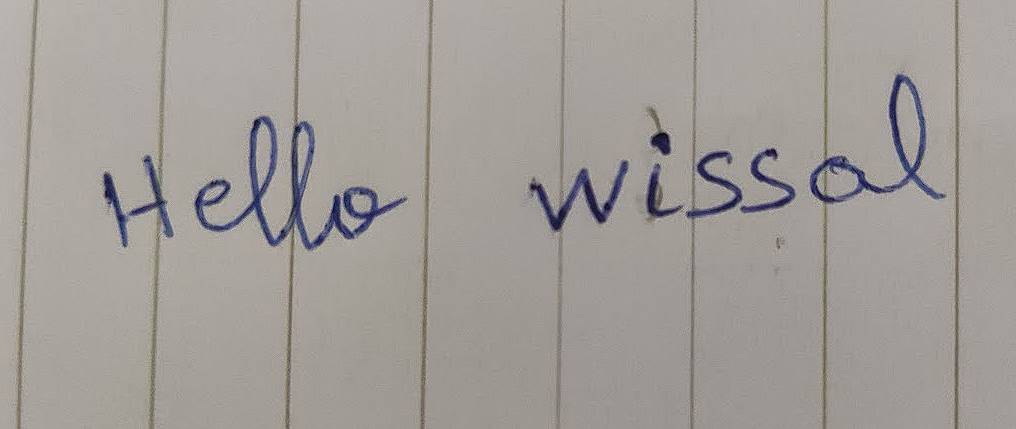 Hello wissal